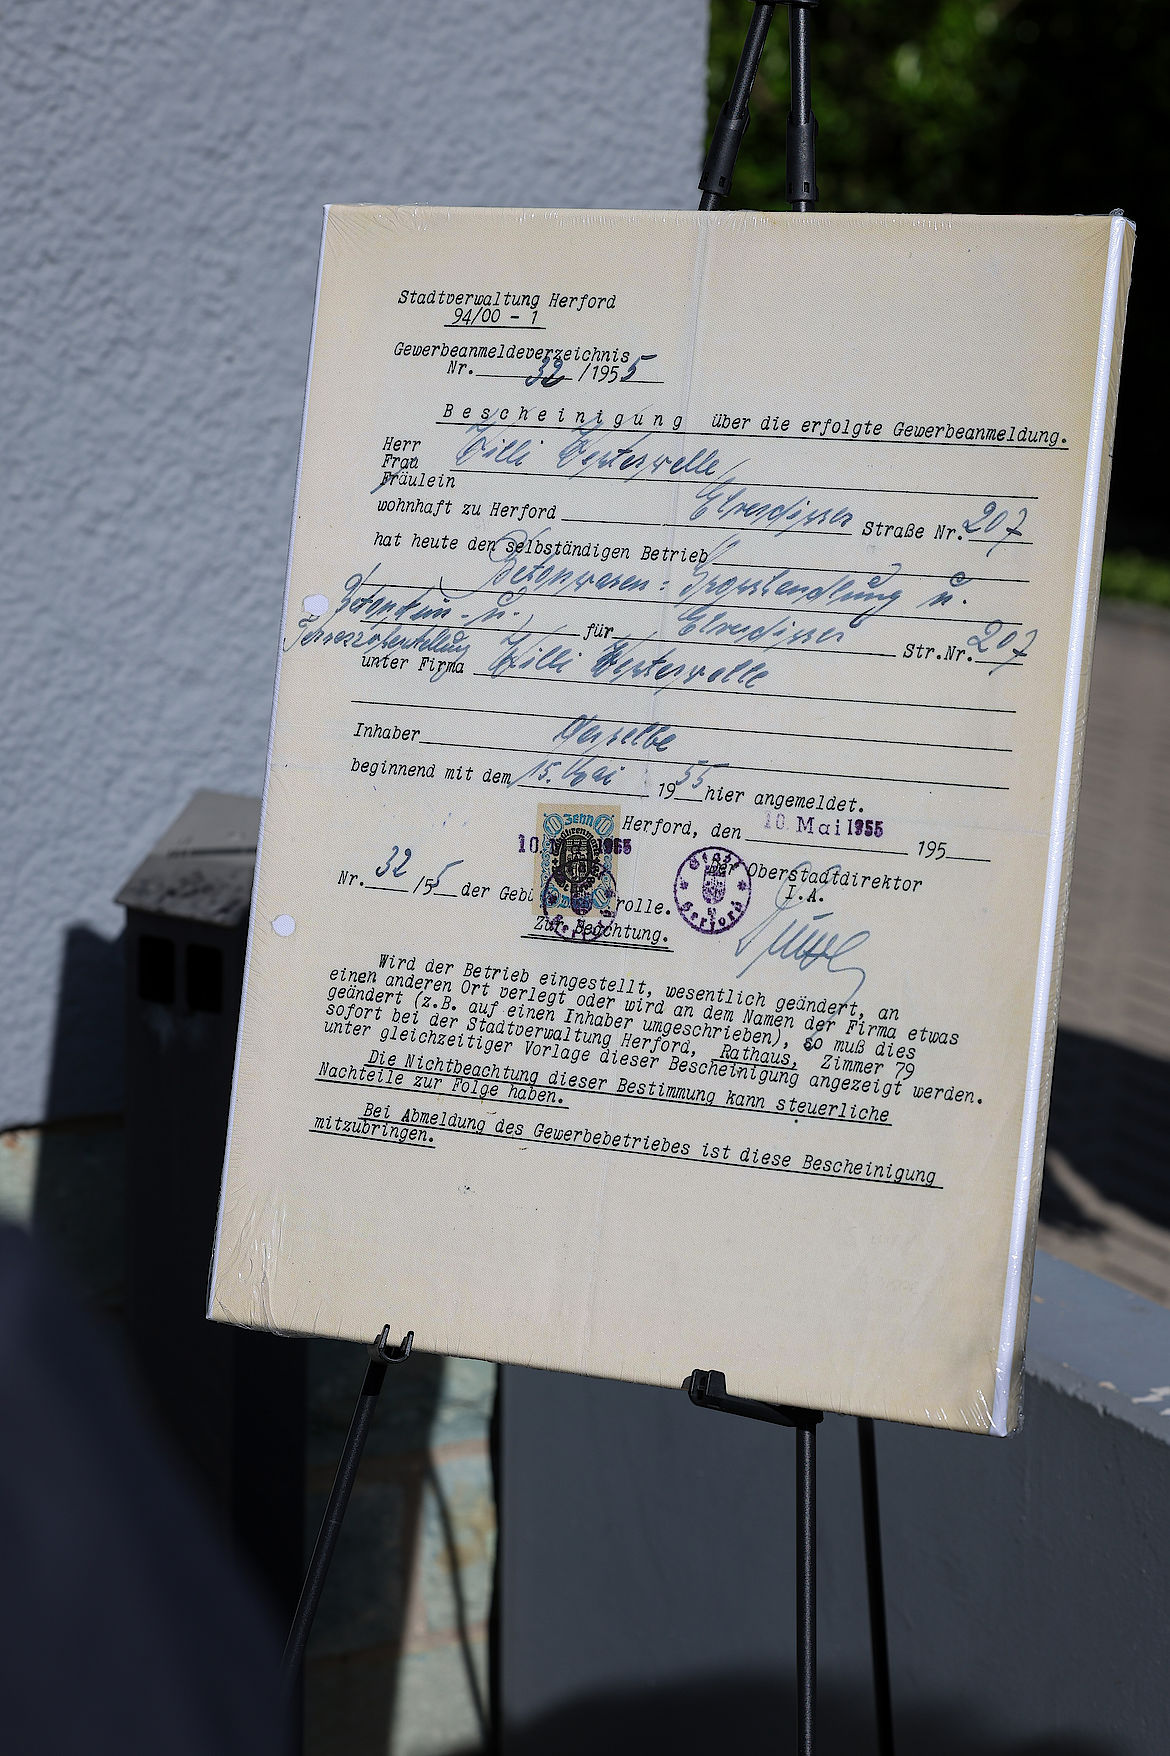 Stadtverwaltung Herford
94/00 - 1
Gewerbeanmeldeverzeichnis
Nr. 32 /1955
Bescheinigung über die erfolgte Gewerbeanmeldung.
Herr
Frau
Fräulein
Willi
wohnhaft zu Herford Elverdisser Straße Nr. 207
hat heute den selbständigen Betrieb
Betonwaren: Grosshandlung u.
u.
für Elverdisser Str.Nr. 207
unter Firma Willi
Inhaber derselbe
beginnend mit dem 15. Mai 1955 hier angemeldet.
Zehn
Herford, den 10. Mai 1955 195
10. 1955
Der Oberstadtdirektor
I.A.
Stadt Herford
Nr. 32 /55 der rolle.
Zur Beachtung.
Wird der Betrieb eingestellt, wesentlich geändert, an
einen anderen Ort verlegt oder wird an dem Namen der Firma etwas
geändert (z.B. auf einen Inhaber umgeschrieben), so muß dies
sofort bei der Stadtverwaltung Herford, Rathaus, Zimmer 79
unter gleichzeitiger Vorlage dieser Bescheinigung angezeigt werden.
Die Nichtbeachtung dieser Bestimmung kann steuerliche
Nachteile zur Folge haben.
Bei Abmeldung des Gewerbebetriebes ist diese Bescheinigung
mitzubringen.